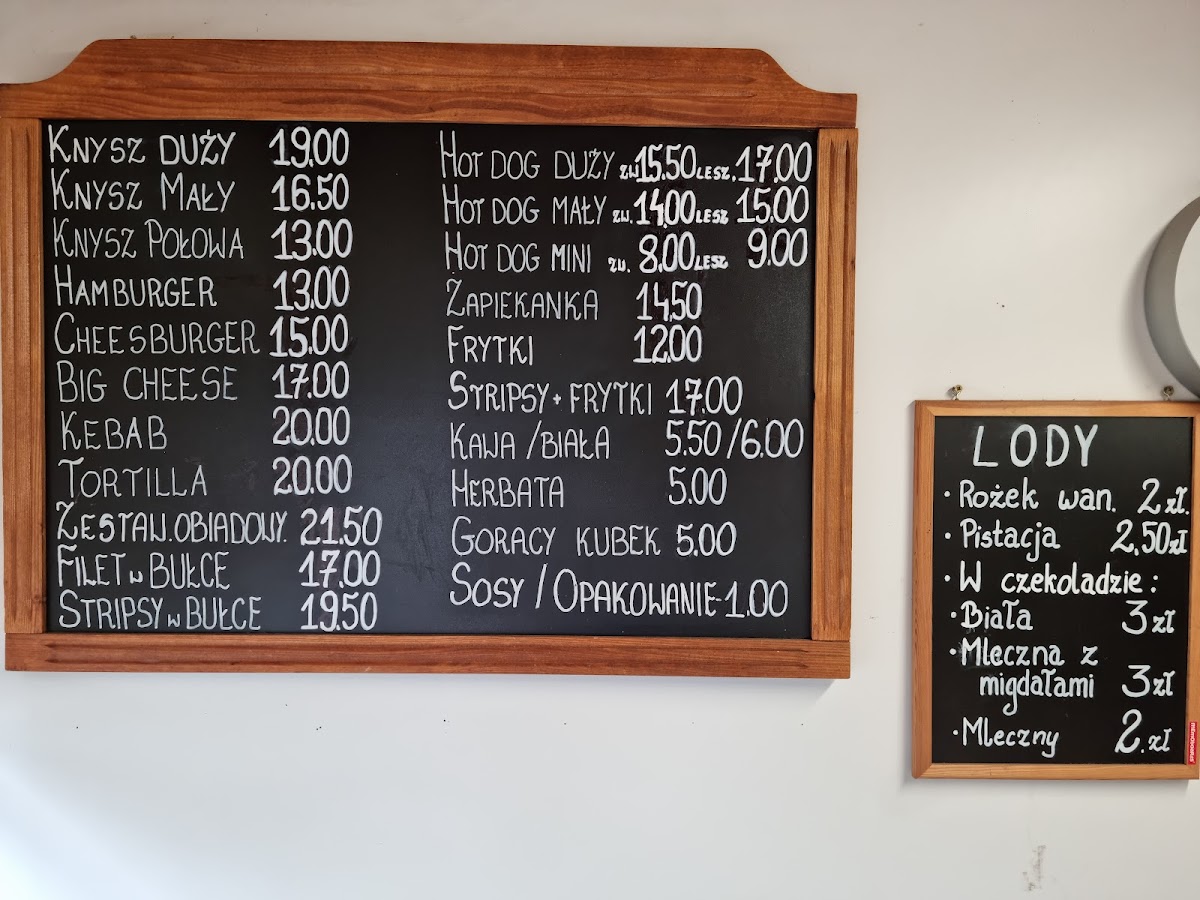 KNYSZ DUŻY 19.00
KNYSZ MAŁY 16.50
KNYSZ POŁOWA 13.00
HAMBURGER 13.00
CHEESBURGER 15.00
BIG CHEESE 17.00
KEBAB 20.00
TORTILLA 20.00
ZESTAW.OBIADOWY. 21.50
FILET W BUŁCE 17.00
STRIPSY W BUŁCE 19.50
HOT DOG DUŻY ZW.15.50 LESZ.17.00
HOT DOG MAŁY ZW.14.00 LESZ 15.00
HOT DOG MINI ZW. 8.00 LESZ 9.00
ZAPIEKANKA 14.50
FRYTKI 12.00
STRIPSY + FRYTKI 17.00
KAWA /BIAŁA 5.50/6.00
HERBATA 5.00
GORACY KUBEK 5.00
SOSY / OPAKOWANIE-1.00
LODY
• Rożek wan. 2 zł.
• Pistacja 2,50 zł
• W czekoladzie:
• Biała 3 zł
• Mleczna z
migdałami 3 zł
• Mleczny 2. zł